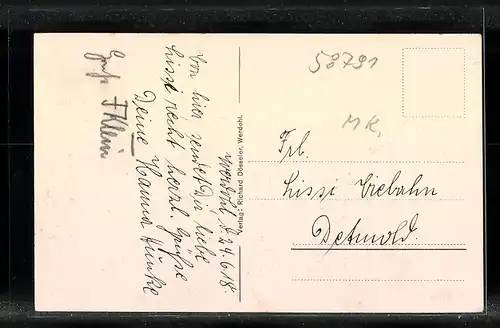 Werdohl, d. 24.6.18.
Von hier sendet Dir liebe
Lissi recht herzl. Grüße
Deine Hanna
Gruß F Klein
Verlag: Richard Dösseler, Werdohl.
58791
MK,
Frl.
Lissi Viebahn
Detmold.